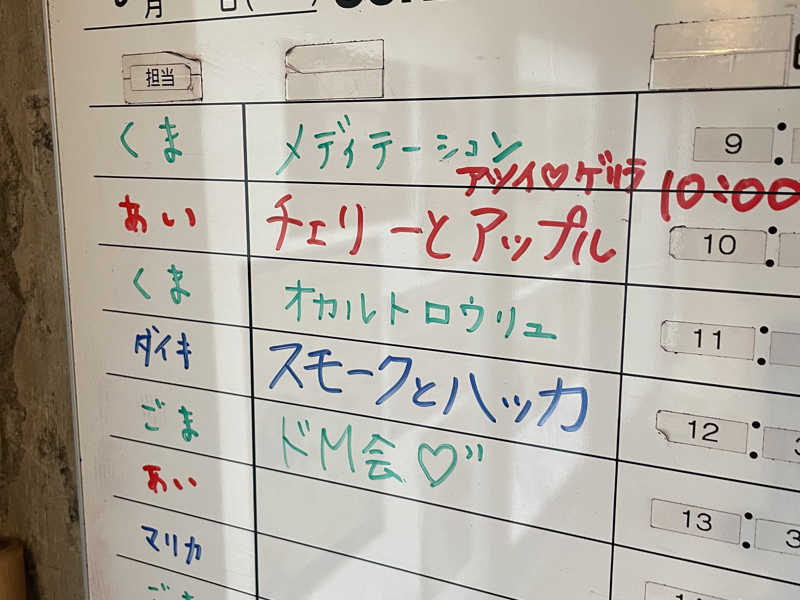 月 日(
担当
くま メディテーション 9:
アツイ♡ゲリラ 10:00
あい チェリーとアップル 10:
くま オカルトロウリュ 11:
ダイキ スモークとハッカ 12:3
ごま ドM会♡〃 13:3
あい
マリカ
ごま